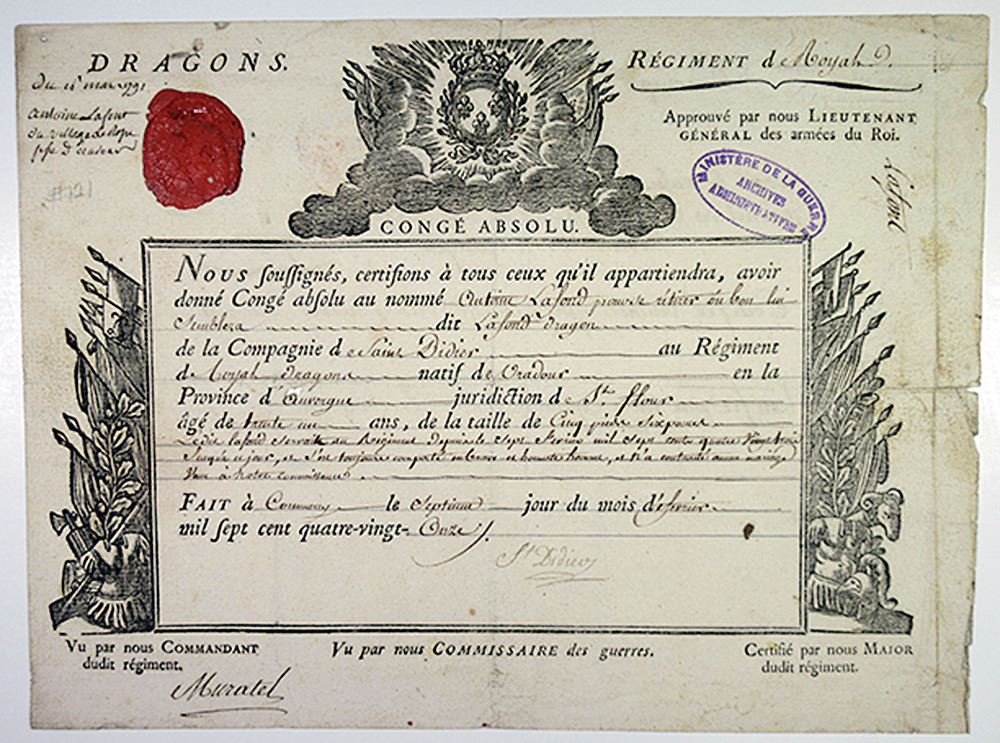 DRAGONS.
RÉGIMENT de Royal D.
Du 15 mars 1791
Antoine Lafont
du village de
Approuvé par nous LIEUTENANT
GÉNÉRAL des armées du Roi.
#121
MINISTÈRE DE LA GUERRE
ARCHIVES
ADMINISTRATIVES
Lafond
CONGÉ ABSOLU.
NOUS souſſignés, certifions à tous ceux qu'il appartiendra, avoir
donné Congé abſolu au nommé Antoine Lafond pour se rétirer où bon lui
Semblera dit Lafond dragon
de la Compagnie de Saint Didier au Régiment
de Royal dragons natif de Oradour en la
Province d'Auvergne juridiction de St. flour
âgé de trente un ans, de la taille de Cinq pieds six pouces
Ledit lafond servait au Régiment depuis le Sept février mil Sept cents quatre Vingt trois
Jusqu'à ce jour, et s'est toujours comporté en brave et honnête homme, et n'a contracté aucun mariage
Venu à notre connoissance
FAIT à le Septieme jour du mois de fevrier
mil ſept cent quatre-vingt- Onze
St Didier
Vu par nous COMMANDANT
dudit régiment.
Vu par nous COMMISSAIRE des guerres.
Certifié par nous MAJOR
dudit régiment.
Muratel